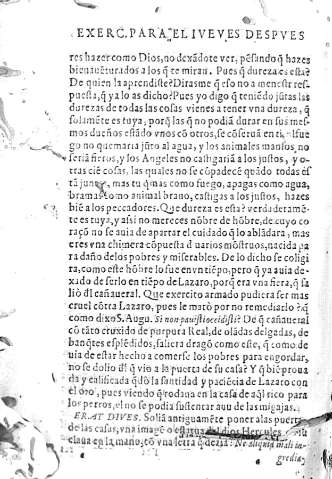 EXERC. PARA EL IUEVES DESPUES
res hazer como Dios, no dexãdote ver, pẽsando q̃ hazes
bienauẽturados a los q̃ te miran. Pues q̃ dureza es esta?
De quien la aprendiste? Dirasme q̃ eso no a menester res-
puesta, q̃ ya lo as dicho? Pues yo digo q̃ teniẽdo jũtas las
durezas de todas las cosas vienes a tener vna dureza, q̃
solamẽte es tuya, porq̃ las q̃ no podiã durar en sus mes-
mos dueños estãdo vnos cõ otros, se cõseruã en ti, el fue
go no quemaria jũto al agua, y los animales mansos, no
seriã fieros, y los Angeles no castigariã a los justos, y o-
tras ciẽ cosas, las quales no se cõpadecẽ quãdo todas es
tã jun mas tu q̃mas como fuego, apagas como agua,
bramas como animal brano, castigas a los justos, hazes
biẽ a los peccadores. Que dureza es esta? verdaderamẽ-
te es tuya, y assi no mereces nõbre de hõbre, de cuyo co
raçõ no se auia de apartar el cuidado q̃ lo ablãdara, mas
eres vna chimera cõpuesta d̃ uarios mõstruos, nacida pa
ra daño de los pobres y miserables. De lo dicho se coligi
ra, como este hõbre lo fue en vn tiẽpo, pero q̃ ya auia de-
xado de serlo en tiẽpo de Lazaro, porq̃ era vna fiera, q̃ sa
lio dl cañaueral. Que exercito armado pudiera ser mas
cruel cõtra Lazaro, pues le mato por no remediarlo? q̃
como dixo S. Augu. Si non pauisti occidisti? De q̃ cañaueral
cõ tãto cruxido de purpura Real, de olãdas delgadas, de
banq̃tes esplẽdidos, saliera drago como este, q̃ como de
uia de estar hecho a comerse los pobres para engordar,
no se dolio dl q̃ vio a la puerta de su casa? Y q̃ biẽ proua
da y calificada q̃dò la santidad y paciẽcia de Lazaro con
el oro, pues viendo q̃ rodana en la casa de aq̃l rico para
los perros, el no se podia sustentar auu de las migajas.
ERAT DIVES. Soliã antiguamẽte poner a las puerta
de las casas, vna imagẽ o estatua del dios Hercules
claua en la mano, cõ vna letra q̃ dezia: Ne aliquid mali in-
grediatur